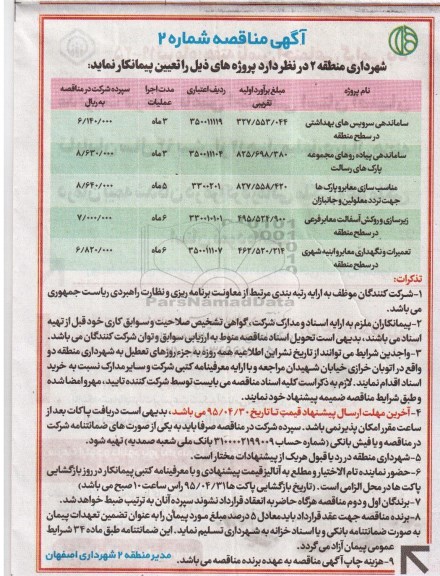 آگهی مناقصه شماره ۲
شهرداری منطقه ۲ در نظر دارد پروژه های ذیل را تعیین پیمانکار نماید:
نام پروژه مبلغ برآورد اولیه تقریبی ردیف اعتباری مدت اجرا عملیات سپرده شرکت در مناقصه به ریال
ساماندهی سرویس های بهداشتی در سطح منطقه ۳۲۷/۵۵۳/۰۴۴ ۳۵۰۰۱۱۱۹ ۳ ماه ۶/۱۴۰/۰۰۰
ساماندهی پیاده روهای مجموعه پارک های رسالت ۸۲۵/۶۹۸/۳۸۰ ۳۵۰۰۱۱۰۴ ۳ ماه ۸/۶۳۰/۰۰۰
مناسب سازی معابر و پارک ها جهت تردد معلولین و جانبازان ۸۲۷/۵۵۸/۴۲۰ ۳۳۰۰۲۰۱ ۵ ماه ۸/۶۴۰/۰۰۰
زیرسازی و روکش آسفالت معابر فرعی در سطح منطقه ۴۹۵/۵۲۴/۹۰۰ ۳۳۰۰۱۰۱۰۱ ۶ ماه ۷/۰۰۰/۰۰۰
تعمیرات و نگهداری معابر و ابنیه شهری در سطح منطقه ۴۶۲/۵۲۰/۳۱۴ ۳۵۰۰۱۱۰۷ ۶ ماه ۶/۸۲۰/۰۰۰
ParsNamadData
تذکرات:
۱-شرکت کنندگان موظف به ارایه رتبه بندی مرتبط از معاونت برنامه ریزی و نظارت راهبردی ریاست جمهوری
می باشد.
۲-پیمانکاران ملزم به ارایه اسناد و مدارک شرکت، گواهی تشخیص صلاحیت و سوابق کاری خود قبل از تهیه
اسناد می باشند، بدیهی است تحویل اسناد مناقصه منوط به ارزیابی سوابق و توان شرکت کنندگان می باشد.
۳-واجدین شرایط می توانند از تاریخ نشر این اطلاعیه همه روزه به جزء روزهای تعطیل به شهرداری منطقه دو
واقع در اتوبان خرازی خیابان شهیدان مراجعه و با ارایه معرفینامه کتبی شرکت و سایر مدارک نسبت به خرید
اسناد اقدام نمایند. لازم به ذکر است کلیه اسناد مناقصه می بایست توسط شرکت کننده تایید، مهر و امضا شده
و طبق شرایط مناقصه ضمیمه پیشنهاد خود نمایند.
۴-آخرین مهلت ارسال پیشنهاد قیمت تا تاریخ ۹۵/۰۴/۳۰ می باشد، بدیهی است دریافت پاکات بعد از
ساعت مقرر امکان پذیر نمی باشد. سپرده شرکت در مناقصه صرفا باید به یکی از صورت های ضمانتنامه شرکت
در مناقصه و یا فیش بانکی (شماره حساب ۳۱۰۰۰۰۲۱۹۹۰۰۹ بانک ملی شعبه صمدیه) تهیه شود.
۵-شهرداری منطقه در رد یا قبول هر یک از پیشنهادات مختار است.
۶-حضور نماینده تام الاختیار و مطلع به آنالیز قیمت پیشنهادی و با معرفینامه کتبی پیمانکار در روز بازگشایی
پاکت ها در محل الزامی است. (تاریخ بازگشایی پاکت ها ۹۵/۰۴/۳۱ راس ساعت ۱۰ صبح می باشد)
۷-برندگان اول و دوم مناقصه هرگاه حاضر به انعقاد قرارداد نشوند سپرده آنان به ترتیب ضبط خواهد شد.
۸-برنده مناقصه جهت عقد قرارداد باید معادل ۵ درصد مبلغ مورد پیمان را به عنوان تضمین تعهدات پیمان
به صورت ضمانتنامه بانکی و یا اسناد خزانه به شهرداری تسلیم نماید. این ضمانتنامه طبق ماده ۳۴ شرایط
عمومی پیمان آزاد می گردد.
۹-هزینه چاپ آگهی مناقصه به عهده برنده مناقصه می باشد.
مدیر منطقه ۲ شهرداری اصفهان